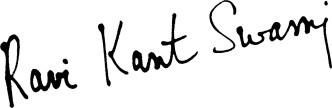 Ravi Kant Swami